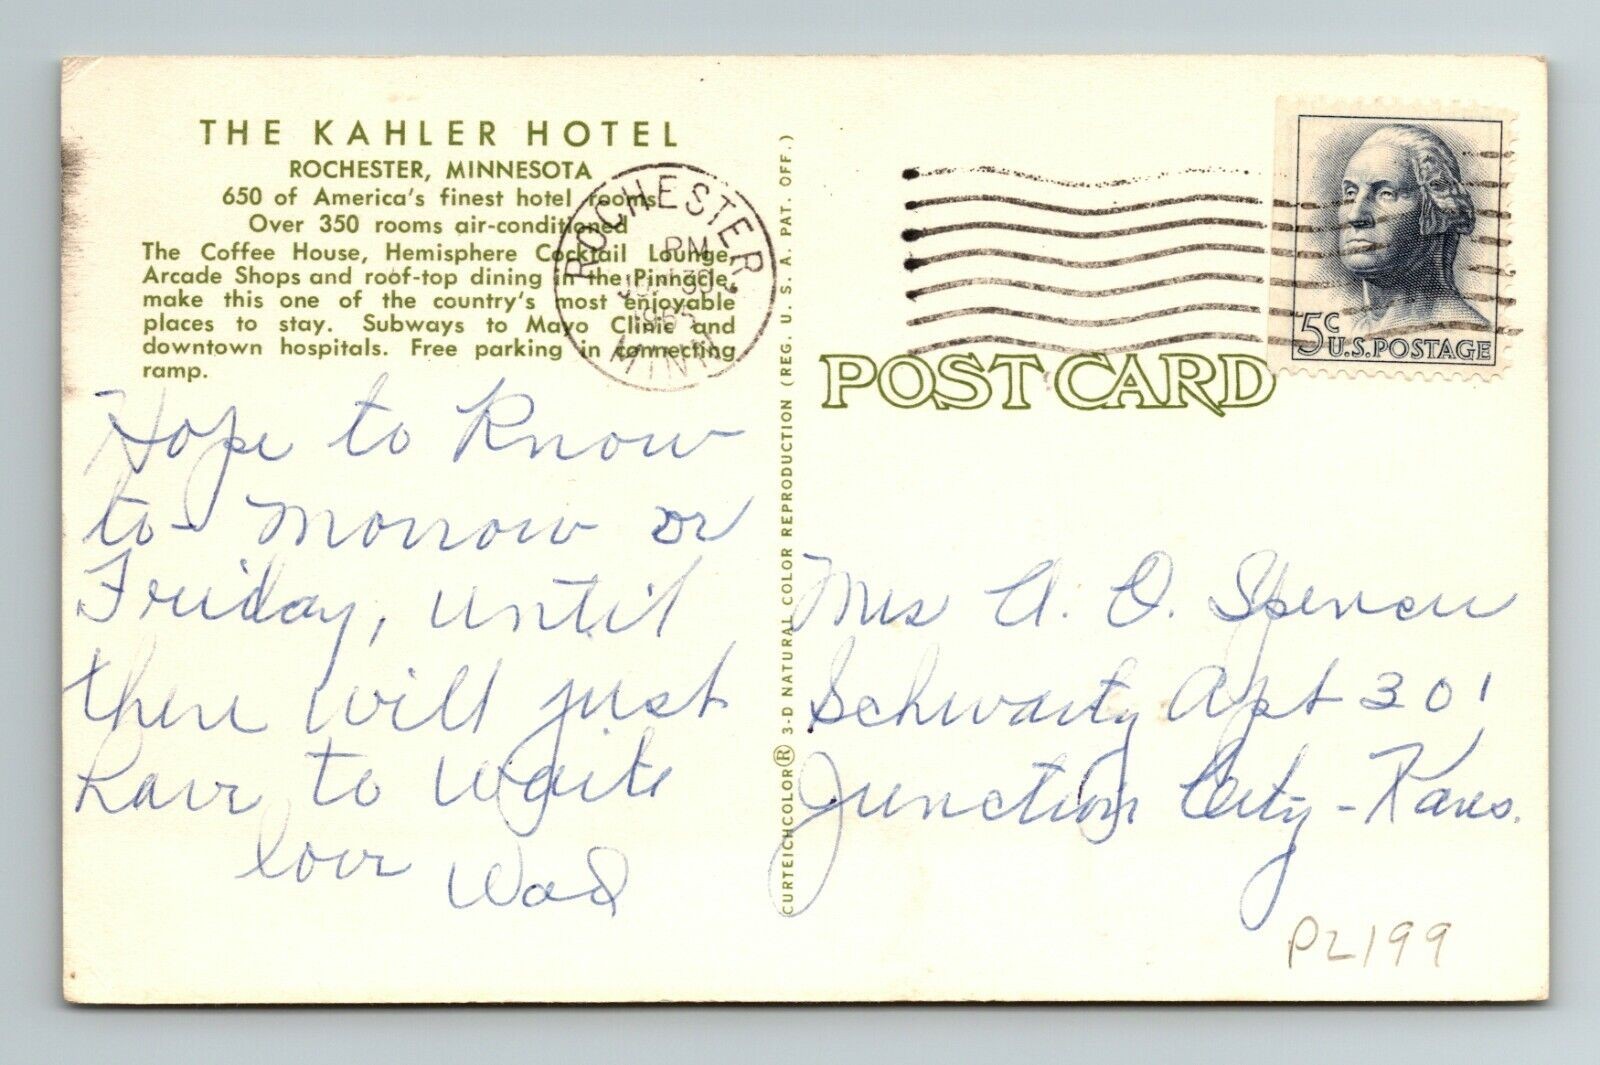 THE KAHLER HOTEL
ROCHESTER, MINNESOTA
650 of America's finest hotel rooms
Over 350 rooms air-conditioned
The Coffee House, Hemisphere Cocktail Lounge,
Arcade Shops and roof-top dining in the Pinnacle,
make this one of the country's most enjoyable
places to stay. Subways to Mayo Clinic and
downtown hospitals. Free parking in connecting
ramp.
ROCHESTER
PM
30
1965
MINN
Hope to Know
to-morrow or
Friday, until
then will just
have to waite
love
CURTEICHCOLOR® 3-D NATURAL COLOR REPRODUCTION (REG. U. S. A. PAT. OFF.)
5c
U.S.POSTAGE
POST CARD
Mrs A. O. Spencer
Schwartz Apt 301
Junction City - Kans.
PL199